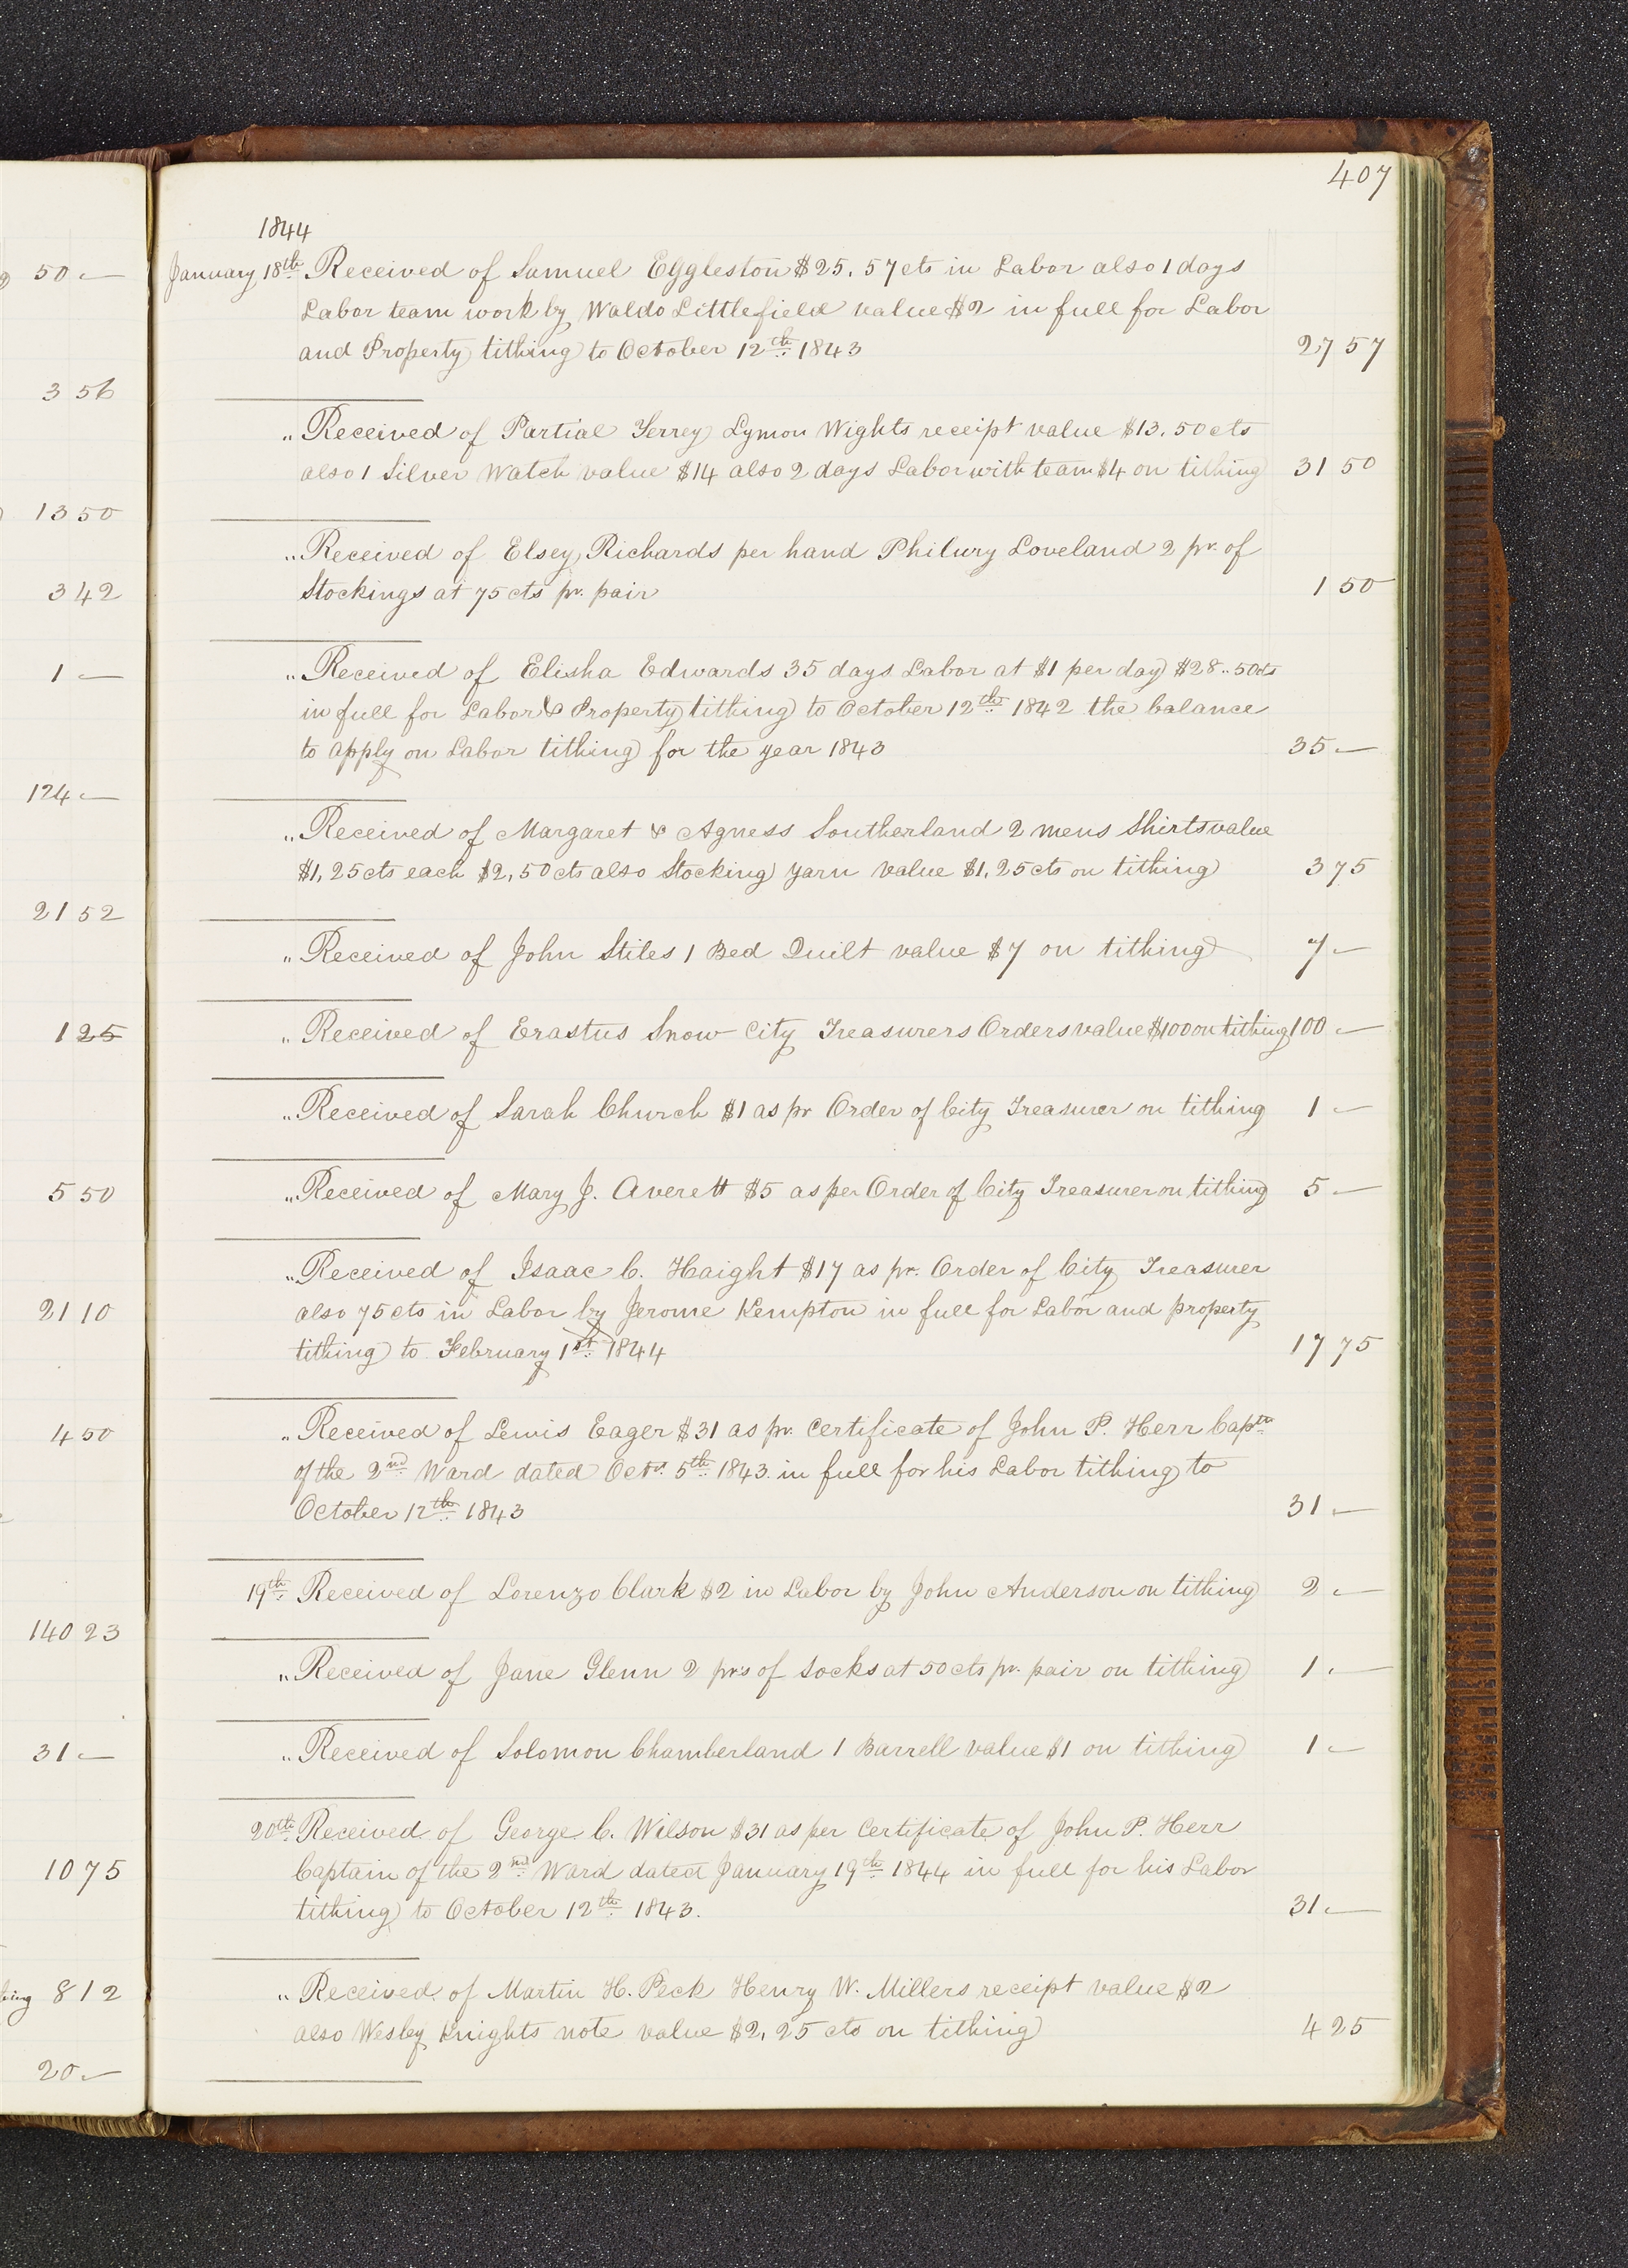 407
1844
January 18th Received of Samuel Eggleston $25.57cts in Labor also 1 days
Labor team work by Waldo Littlefield value $2 in full for Labor
and Property tithing to October 12th 1843 27 57
„ Received of Partial Terrey Lymon Wights receipt value $13.50cts
also 1 Silver Watch value $14 also 2 days Labor with team $4 on tithing 31 50
„ Received of Elsey Richards per hand Philury Loveland 2 pr. of
Stockings at 75cts pr. pair 1 50
„ Received of Elisha Edwards 35 days Labor at $1 per day $28..50cts
in full for Labor & Property tithing to October 12th 1842 the balance
to apply on Labor tithing for the year 1843 35 —
„ Received of Margaret & Agness Southerland 2 mens Shirts value
$1,25cts each $2,50cts also Stocking yarn value $1,25cts on tithing 3 75
„ Received of John Stiles 1 Bed Quilt value $7 on tithing 7 —
„ Received of Erastus Snow City Treasurers Orders value $100 on tithing 100 —
„ Received of Sarah Church $1 as pr Order of City Treasurer on tithing 1 —
„ Received of Mary J. Averett $5 as per Order of City Treasurer on tithing 5 —
„ Received of Isaac C. Haight $17 as pr. Order of City Treasurer
also 75cts in Labor by Jerome Kempton in full for Labor and property
tithing to February 1st 1844 17 75
„ Received of Lewis Eager $31 as pr. Certificate of John P. Herr Captn
of the 2nd Ward dated Octr. 5th 1843. in full for his Labor tithing to
October 12th 1843 31 —
19th Received of Lorenzo Clark $2 in Labor by John Anderson on tithing 2 —
„ Received of Jane Glenn 2 prs of Socks at 50cts pr. pair on tithing 1 —
„ Received of Solomon Chamberland 1 Barrell value $1 on tithing 1 —
20th Received of George C. Wilson $31 as per Certificate of John P. Herr
Captain of the 2nd Ward dated January 19th 1844 in full for his Labor
tithing to October 12th 1843. 31 —
„ Received of Martin H. Peck Henry W. Millers receipt value $2
also Wesley Knights note value $2,25 cts on tithing 4 25
50 —
3 56
13 50
3 42
1 —
124 —
21 52
1 25
5 50
21 10
4 50
140 23
31 —
10 75
8 12
20 —